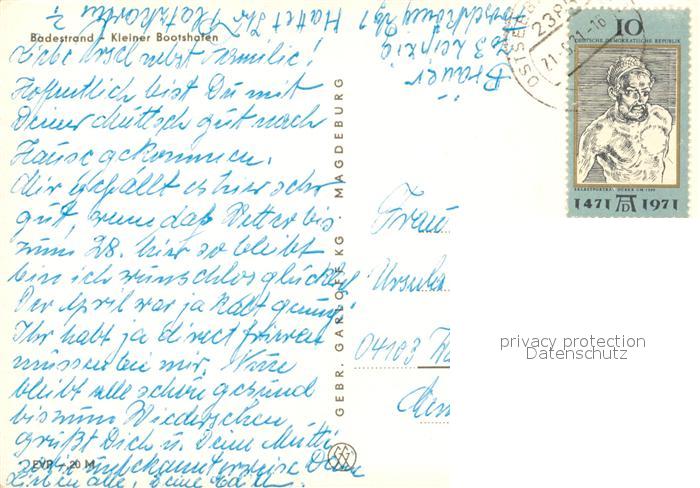 Badestrand - Kleiner Bootshafen
Liebe Ursel nebst Familie!
Hoffentlich bist Du mit
Deiner Muttsch gut nach
Hause gekommen.
Mir gefällt es hier sehr
gut, wenn das Wetter bis
zum 28. hier so bleibt
bin ich wunschlos glücklich
Der April war ja kalt genug!
Ihr habt ja direkt frieren
müssen bei mir. Nun
bleibt alle schön gesund
bis zum Wiedersehen
grüßt Dich u. Deine Mutti
sowie unbekannterweise Deine
Lieben alle, Deine
EVP - 20 M
Brauer
703 Leipzig
Hattet Ihr Platzkarten
?
GEBR. GARLOFF KG · MAGDEBURG
OSTSEEB
238
21.-5.71.-10
10
DEUTSCHE DEMOKRATISCHE REPUBLIK
SELBSTPORTRÄT DÜRER UM 1500
1471 AD 1971
Frau
Ursula
04103
privacy protection
Datenschutz